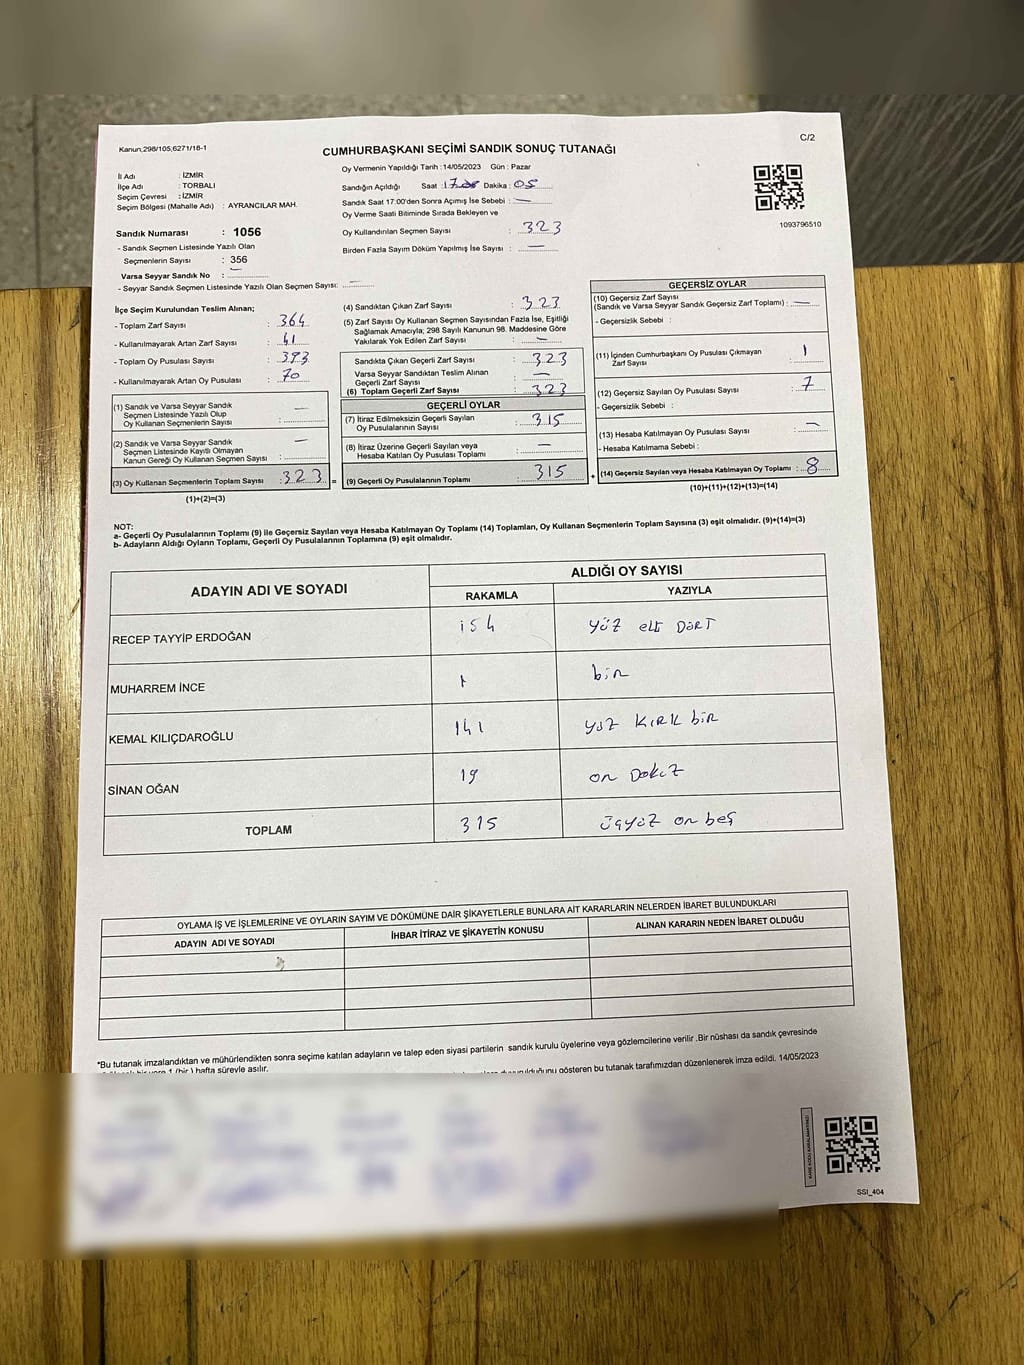 Kanun,298/105,6271/18-1
C/2
CUMHURBAŞKANI SEÇİMİ SANDIK SONUÇ TUTANAĞI
İl Adı : İZMİR
İlçe Adı : TORBALI
Seçim Çevresi : İZMİR
Seçim Bölgesi (Mahalle Adı) : AYRANCILAR MAH.
Sandık Numarası : 1056
- Sandık Seçmen Listesinde Yazılı Olan
Seçmenlerin Sayısı : 356
Varsa Seyyar Sandık No : —
- Seyyar Sandık Seçmen Listesinde Yazılı Olan Seçmen Sayısı: —
Oy Vermenin Yapıldığı Tarih :14/05/2023 Gün : Pazar
Sandığın Açıldığı Saat : Dakika : 05
Sandık Saat 17.00'den Sonra Açımış İse Sebebi : —
Oy Verme Saati Bitiminde Sırada Bekleyen ve
Oy Kullandırılan Seçmen Sayısı : 323
Birden Fazla Sayım Döküm Yapılmış İse Sayısı : —
1093796510
İlçe Seçim Kurulundan Teslim Alınan;
- Toplam Zarf Sayısı : 364
- Kullanılmayarak Artan Zarf Sayısı : 41
- Toplam Oy Pusulası Sayısı : 393
- Kullanılmayarak Artan Oy Pusulası : 70
(1) Sandık ve Varsa Seyyar Sandık
Seçmen Listesinde Yazılı Olup
Oy Kullanan Seçmenlerin Sayısı : —
(2) Sandık ve Varsa Seyyar Sandık
Seçmen Listesinde Kayıtlı Olmayan
Kanun Gereği Oy Kullanan Seçmen Sayısı : —
(3) Oy Kullanan Seçmenlerin Toplam Sayısı : 323 =
(1)+(2)=(3)
(4) Sandıktan Çıkan Zarf Sayısı : 323
(5) Zarf Sayısı Oy Kullanan Seçmen Sayısından Fazla İse, Eşitliği
Sağlamak Amacıyla; 298 Sayılı Kanunun 98. Maddesine Göre
Yakılarak Yok Edilen Zarf Sayısı : —
Sandıkta Çıkan Geçerli Zarf Sayısı : 323
Varsa Seyyar Sandıktan Teslim Alınan
Geçerli Zarf Sayısı : —
(6) Toplam Geçerli Zarf Sayısı : 323
GEÇERLİ OYLAR
(7) İtiraz Edilmeksizin Geçerli Sayılan
Oy Pusulalarının Sayısı : 315
(8) İtiraz Üzerine Geçerli Sayılan veya
Hesaba Katılan Oy Pusulası Toplamı : —
(9) Geçerli Oy Pusulalarının Toplamı : 315 +
GEÇERSİZ OYLAR
(10) Geçersiz Zarf Sayısı
(Sandık ve Varsa Seyyar Sandık Geçersiz Zarf Toplamı) : —
- Geçersizlik Sebebi :
(11) İçinden Cumhurbaşkanı Oy Pusulası Çıkmayan
Zarf Sayısı : 1
(12) Geçersiz Sayılan Oy Pusulası Sayısı : 7
- Geçersizlik Sebebi :
(13) Hesaba Katılmayan Oy Pusulası Sayısı : —
- Hesaba Katılmama Sebebi :
(14) Geçersiz Sayılan veya Hesaba Katılmayan Oy Toplamı : 8
(10)+(11)+(12)+(13)=(14)
NOT:
a- Geçerli Oy Pusulalarının Toplamı (9) ile Geçersiz Sayılan veya Hesaba Katılmayan Oy Toplamı (14) Toplamları, Oy Kullanan Seçmenlerin Toplam Sayısına (3) eşit olmalıdır. (9)+(14)=(3)
b- Adayların Aldığı Oyların Toplamı, Geçerli Oy Pusulalarının Toplamına (9) eşit olmalıdır.
ADAYIN ADI VE SOYADI
ALDIĞI OY SAYISI
RAKAMLA YAZIYLA
RECEP TAYYİP ERDOĞAN 154 yüz elli Dört
MUHARREM İNCE 1 bir
KEMAL KILIÇDAROĞLU 141 yüz kırk bir
SİNAN OĞAN 19 on Dokuz
TOPLAM 315 üçyüz on beş
OYLAMA İŞ VE İŞLEMLERİNE VE OYLARIN SAYIM VE DÖKÜMÜNE DAİR ŞİKAYETLERLE BUNLARA AİT KARARLARIN NELERDEN İBARET BULUNDUKLARI
ADAYIN ADI VE SOYADI İHBAR İTİRAZ VE ŞİKAYETİN KONUSU ALINAN KARARIN NEDEN İBARET OLDUĞU
*Bu tutanak imzalandıktan ve mühürlendikten sonra seçime katılan adayların ve talep eden siyasi partilerin sandık kurulu üyelerine veya gözlemcilerine verilir .Bir nüshası da sandık çevresinde
1 (bir ) hafta süreyle asılır.
gösteren bu tutanak tarafımızdan düzenlenerek imza edildi. 14/05/2023
SSI_404